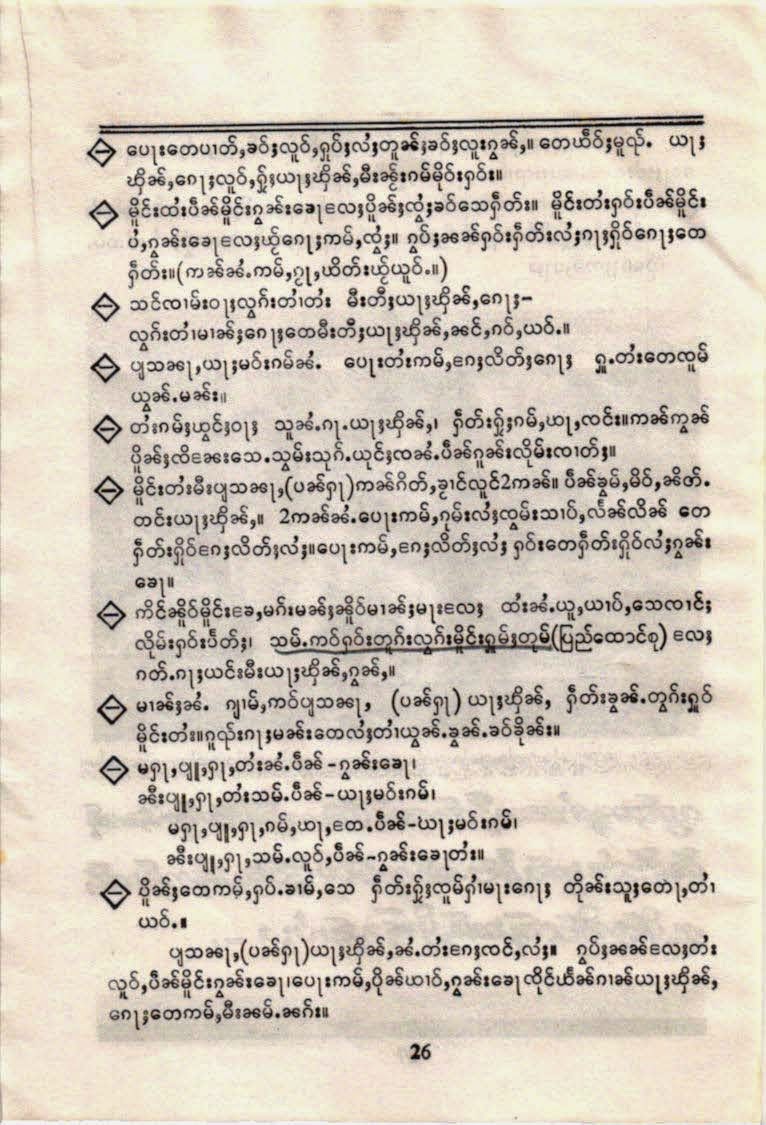 ပေႃးတေပၢတ်ႇၶဝ်ႈလူဝ်ႇႁုပ်ႈလႆႈတူၼ်ႈၶဝ်ႈလူးၵွၼ်ႇ။ တေယဵဝ်ႈမူၺ်ႉ ယႃႈ
ၾိၼ်ႇၵေႃႈလူဝ်ႇႁႂ်ႈယႃႈၾိၼ်ႇမီးၼႂ်းၵမ်မိုဝ်းႁဝ်း။
မိူင်းထႆးပဵၼ်မိူင်းၵွၼ်းၶေႃလႄႈပိူၼ်ႈၸွႆႈၶဝ်သေႁဵတ်း။ မိူင်းတႆးႁဝ်းပဵၼ်မိူင်း
ပႆႇၵွၼ်းၶေႃလႄႈယႂ်ႇၵေႃႈဢမ်ႇၸွႆႈ။ ၵွပ်ႈၼၼ်ႁဝ်းႁဵတ်းလႆႈၵႃႈႁိုဝ်ၵေႃႈတေ
ႁဵတ်း။(ဢၼ်ၼႆႉဢမ်ႇၵႂႃႇယိတ်းယႂ်ႇယူဝ်ႉ။)
သင်ၸၢမ်းဝႃႈလွၵ်းတၢႆတႆး မီးတီႈယႃႈၾိၼ်ႇၵေႃႈ–
လွၵ်းတၢႆမၢၼ်ႈၵေႃႈတေမီးတီႈယႃႈၾိၼ်ႇၼင်ႇၵဝ်ႇယဝ်ႉ။
ပျႃသၼႃႇယႃႈမဝ်းၵမ်ၼႆႉ ပေႃးတႆးဢမ်ႇၵႄႈလိတ်ႈၵေႃႈ ႁူႉတႆးတေၸူမ်
ယွၼ်ႉမၼ်း။
တႆးၵမ်ႈၽွင်ႈဝႃႈ သူၼႆႉၵႃႉယႃႈၾိၼ်ႇ၊ ႁဵတ်းႁႂ်ႈၵမ်ႇၽႃႇၸင်း။ဢၼ်ဢွၼ်
ပိူၼ်ႈၸိၼႄးသေႉသွမ်းသုၵ်ႉယုင်ႈၸၼႆႉပဵၼ်ၵူၼ်းလိုမ်းၸၢတ်ႈ။
မိူင်းတႆးမီးပျႃသၼႃႇ(ပၼ်ႁႃ)ဢၼ်ၵိတ်ႇၶွင်လူင်2ဢၼ်။ ပဵၼ်ၶွမ်ႇမိဝ်ႇၼိတ်ႉ
တင်းယႃႈၾိၼ်ႇ။ 2ဢၼ်ၼႆႉပေႃးဢမ်ႇၵုမ်းလႆႈၸွမ်းသၢပ်ႇလႅၼ်လိၼ် တေ
ႁဵတ်းႁိုဝ်ၵႄႈလိတ်ႈလႆႈ။ပေႃးဢမ်ႇၵႄႈလိတ်ႈလႆႈ ႁဝ်းတေႁဵတ်းႁိုဝ်လႆႈၵွၼ်း
ၶေႃ။
ဢိင်ၼိူဝ်မိူင်းၶႄႇမၵ်းမၼ်ႈၼိူဝ်မၢၼ်ႈမႃးလႄႈ ထႆးၼႆႉယူႇယၢပ်ႇသေၸၢင်ႈ
လိုမ်းႁဝ်းပႅတ်ႈ၊ သမ်ႉဢဝ်ႁဝ်းတူၵ်းလွၵ်းမိူင်းႁူမ်ႈတုမ်(ပြည်ထောင်စု) လႄႈ
ၵတ်ႉၵႃႈယင်းမီးယႃႈၾိၼ်ႇၵွၼ်ႇ။
မၢၼ်ႈၼႆႉ ၵျၢမ်ႇဢဝ်ပျႃသၼႃႇ (ပၼ်ႁႃ) ယႃႈၾိၼ်ႇ ႁဵတ်းၶွၼ်ႉတွၵ်းႁူဝ်
မိူင်းတႆး။ၵူၺ်းၵႃႈမၼ်းတေလႆႈတၢႆယွၼ်ႉၶွၼ်ႉၶဝ်ၶိုၼ်း။
မႁႃႇပျူႇႁႃႇတႆးၼႆႉပဵၼ် –ၵွၼ်းၶေႃ၊
ၼီးပျူႇႁႃႇတႆးသမ်ႉပဵၼ်–ယႃႈမဝ်းၵမ်၊
မႁႃႇပျူႇႁႃႇၵမ်ႇၽႃႇၸေႉပဵၼ်–ယႃႈမဝ်းၵမ်၊
ၼီးပျူႇႁႃႇသမ်ႉလူဝ်ႇပဵၼ်–ၵွၼ်းၶေႃတႆး။
ပိူၼ်ႈတေဢမ်ႇႁပ်ႉၶၢမ်ႇသေ ႁဵတ်းႁႂ်ႈၸူမ်ႁၢႆမႃးၵေႃႈ တိုၼ်းသူႈတေႃႇတၢႆ
ယဝ်ႉ။
ပျႃသၼႃႇ(ပၼ်ႁႃ)ယႃႈၾိၼ်ႇၼႆႉတႆးၵႄႈၸင်ႇလႆႈ။ ၵွပ်ႈၼၼ်လႄႈတႆး
လူဝ်ႇပဵၼ်မိူင်းၵွၼ်းၶေႃ၊ပေႃးဢမ်ႇပိုၼ်ၽၢဝ်ႇၵွၼ်းၶေႃၸိုင်ယႅၼ်ၵၢၼ်ယႃႈၾိၼ်ႇ
ၵေႃႈတေဢမ်ႇမီးၼမ်ႉၼၵ်း။
26